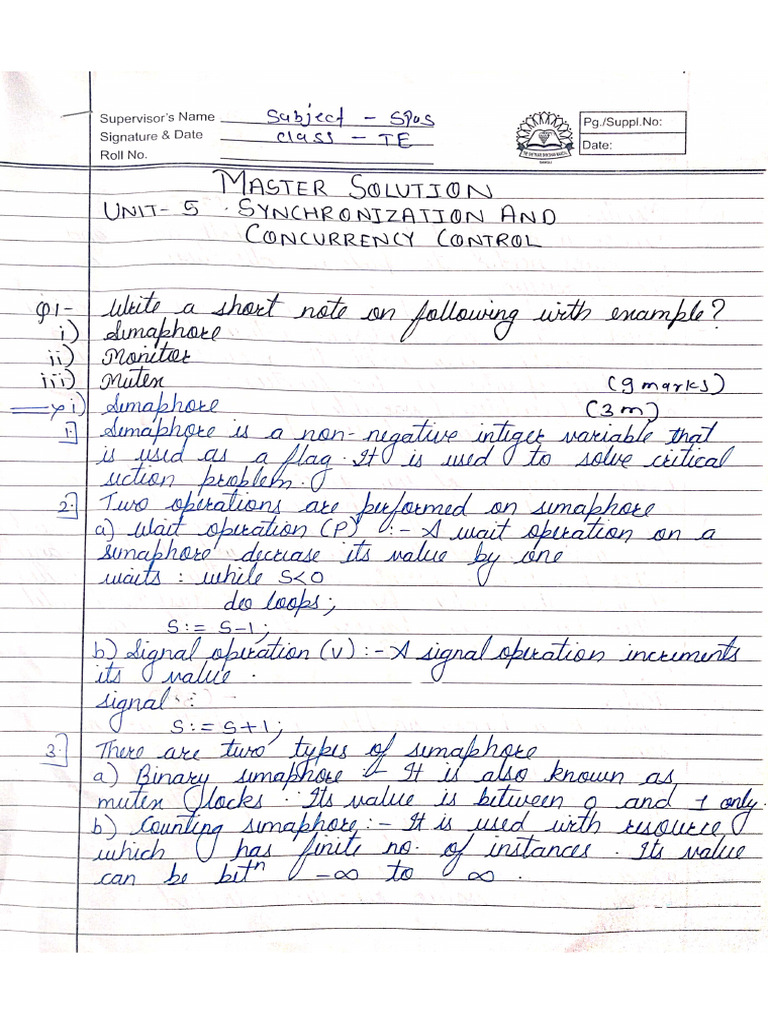 Supervisor's Name Subject - SPOS
Signature & Date Class - TE
Roll No.
Pg./Suppl.No:
Date:
MASTER SOLUTION
UNIT- 5 . SYNCHRONIZATION AND
CONCURRENCY CONTROL
Q1- Write a short note on following with example?
i) Semaphore
ii) Monitor
iii) Mutex (9 marks)
→ i) Semaphore (3m)
1.] Semaphore is a non-negative integer variable that
is used as a flag. It is used to solve critical
section problem.
2.] Two operations are performed on semaphore
a) Wait operation (P) :- A wait operation on a
semaphore decrease its value by one
waits : while S<0
do loops;
S:= S-1;
b) Signal operation (V) :- A signal operation increments
its value.
signal :
S:= S+1;
3.] There are two types of semaphore
a) Binary semaphore - It is also known as
mutex locks. Its value is between 0 and 1 only.
b) Counting semaphore:- It is used with resource
which has finite no. of instances. Its value
can be betⁿ -∞ to ∞.